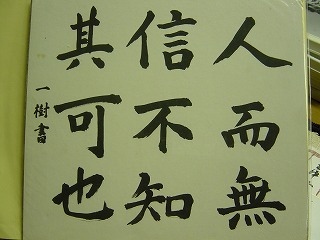 人而無
信不知
其可也
一樹書